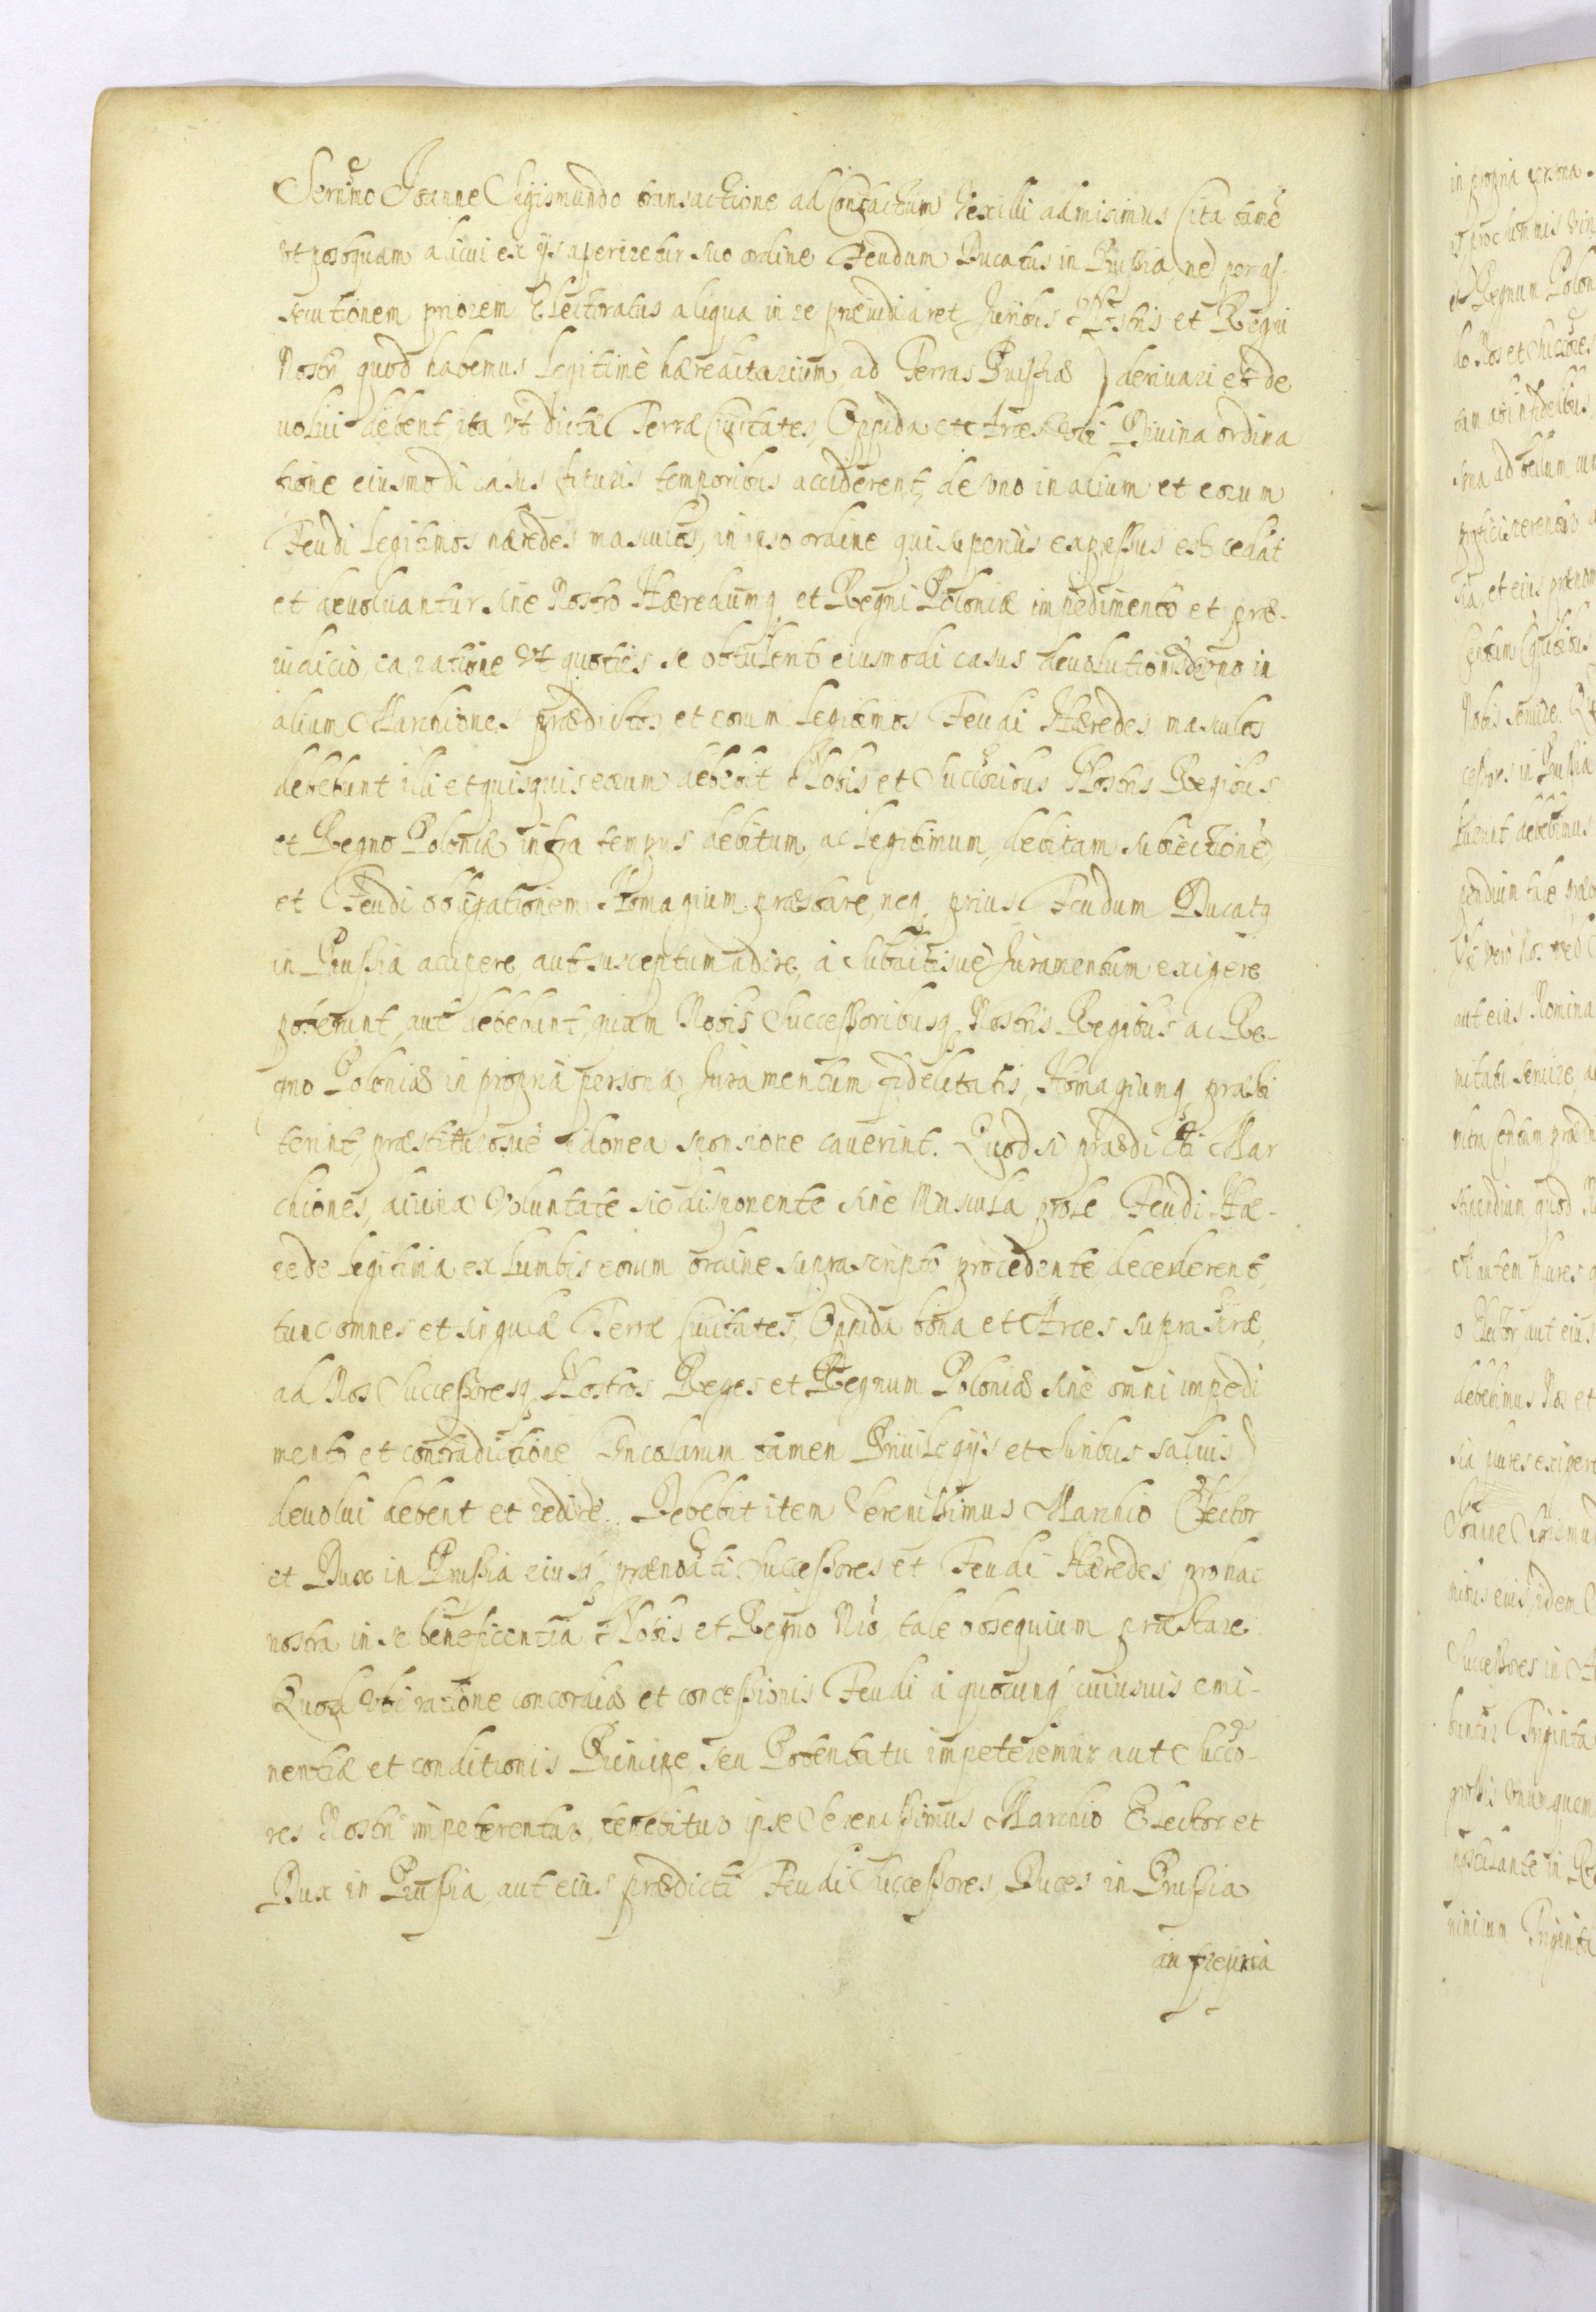 Serm̃o Joanne Sigismundo transactione ad Contactum Vexilli admisimus (ita tamẽ
vt postquam alicui ex ijs aperiretur suo ordine Feudum Ducatus in Prussia, nec per as-
secutionem priorem Electoratus aliqua in re præiudicaret) Juribus Nostris et Regni
Nostri quod habemus legitimè hæreditarium ad Terras Prussiæ) deriuari et de
uolui debent, ita vt dictæ Terræ Ciuitates, Oppida et Arces vbi Diuina ordina
tione eiusmodi casus futuris temporibus acciderent, de vno in alium et eorum
Feudi legitimos hæredes masculos, in ipso ordine qui superius expressus est cedãt
et deuoluantur sine Nostro Hæredumq et Regni Poloniæ impedimento et præ-
iudicio ea ratione vt quoties se obtulerit eiusmodi casus deuolutionis de vno in
alium Marchiones prædictos et eorum legitimos Feudi Hæredes masculos
debebunt illi et quisquis eorum debebit Nobis et Succõribus Nostris Regibus
et Regno Poloniæ infra tempus debitum, ac legitimum, debitam subiectionẽ,
et Feudi obligationem Homagium præstare, neq prius Feudum Ducatq
in Prussia accipere, aut susceptum adire, à Subditisuè Juramentum exigere
poterunt, aut debebunt, quam Nobis Successoribusq Nostris Regibus ac Re-
gno Poloniæ in propria persona, Juramentum fidelitatis, Homagiumq præsti
terint, præstiturosuè idonea sponsione cauerint. Quod si prædicti Mar
chiones, diuina Voluntate sic disponente sine Mascula prole Feudi Hæ-
rede legitima ex lumbis eorum ordine suprascripto procedente decederent,
tunc omnes et singulæ Terræ Ciuitates, Oppida bona et Arces supra
ad Nos Successoresq Nostros Reges et Regnum Poloniæ sine omni impedi
mento et contradictione (Incolarum tamen Priuilegijs et Juribus saluis)
deuolui debent et redire. Debebit item Serenissimus Marchio Elector
et Dux in Prussia eiusq prænoãti Successores et Feudi Hæredes, pro hac
nostra in se beneficentia Nobis et Regno Nr̃o, tale obsequium præstare.
Quod vbi ratione concordiæ et concessionis Feudi à quocunq cuiusuis emi-
nentiæ et conditionis Principe, seu Potentatu impeteremur aut Succo-
res Nostri impeterentur, tenebitur ipse Serenissimus Marchio Elector et
Dux in Prussia, aut eius prædicti Feudi Successores, Duces in Prussia
in propria persona.
et Regnum Polon
aut eius Nomina
Successores in